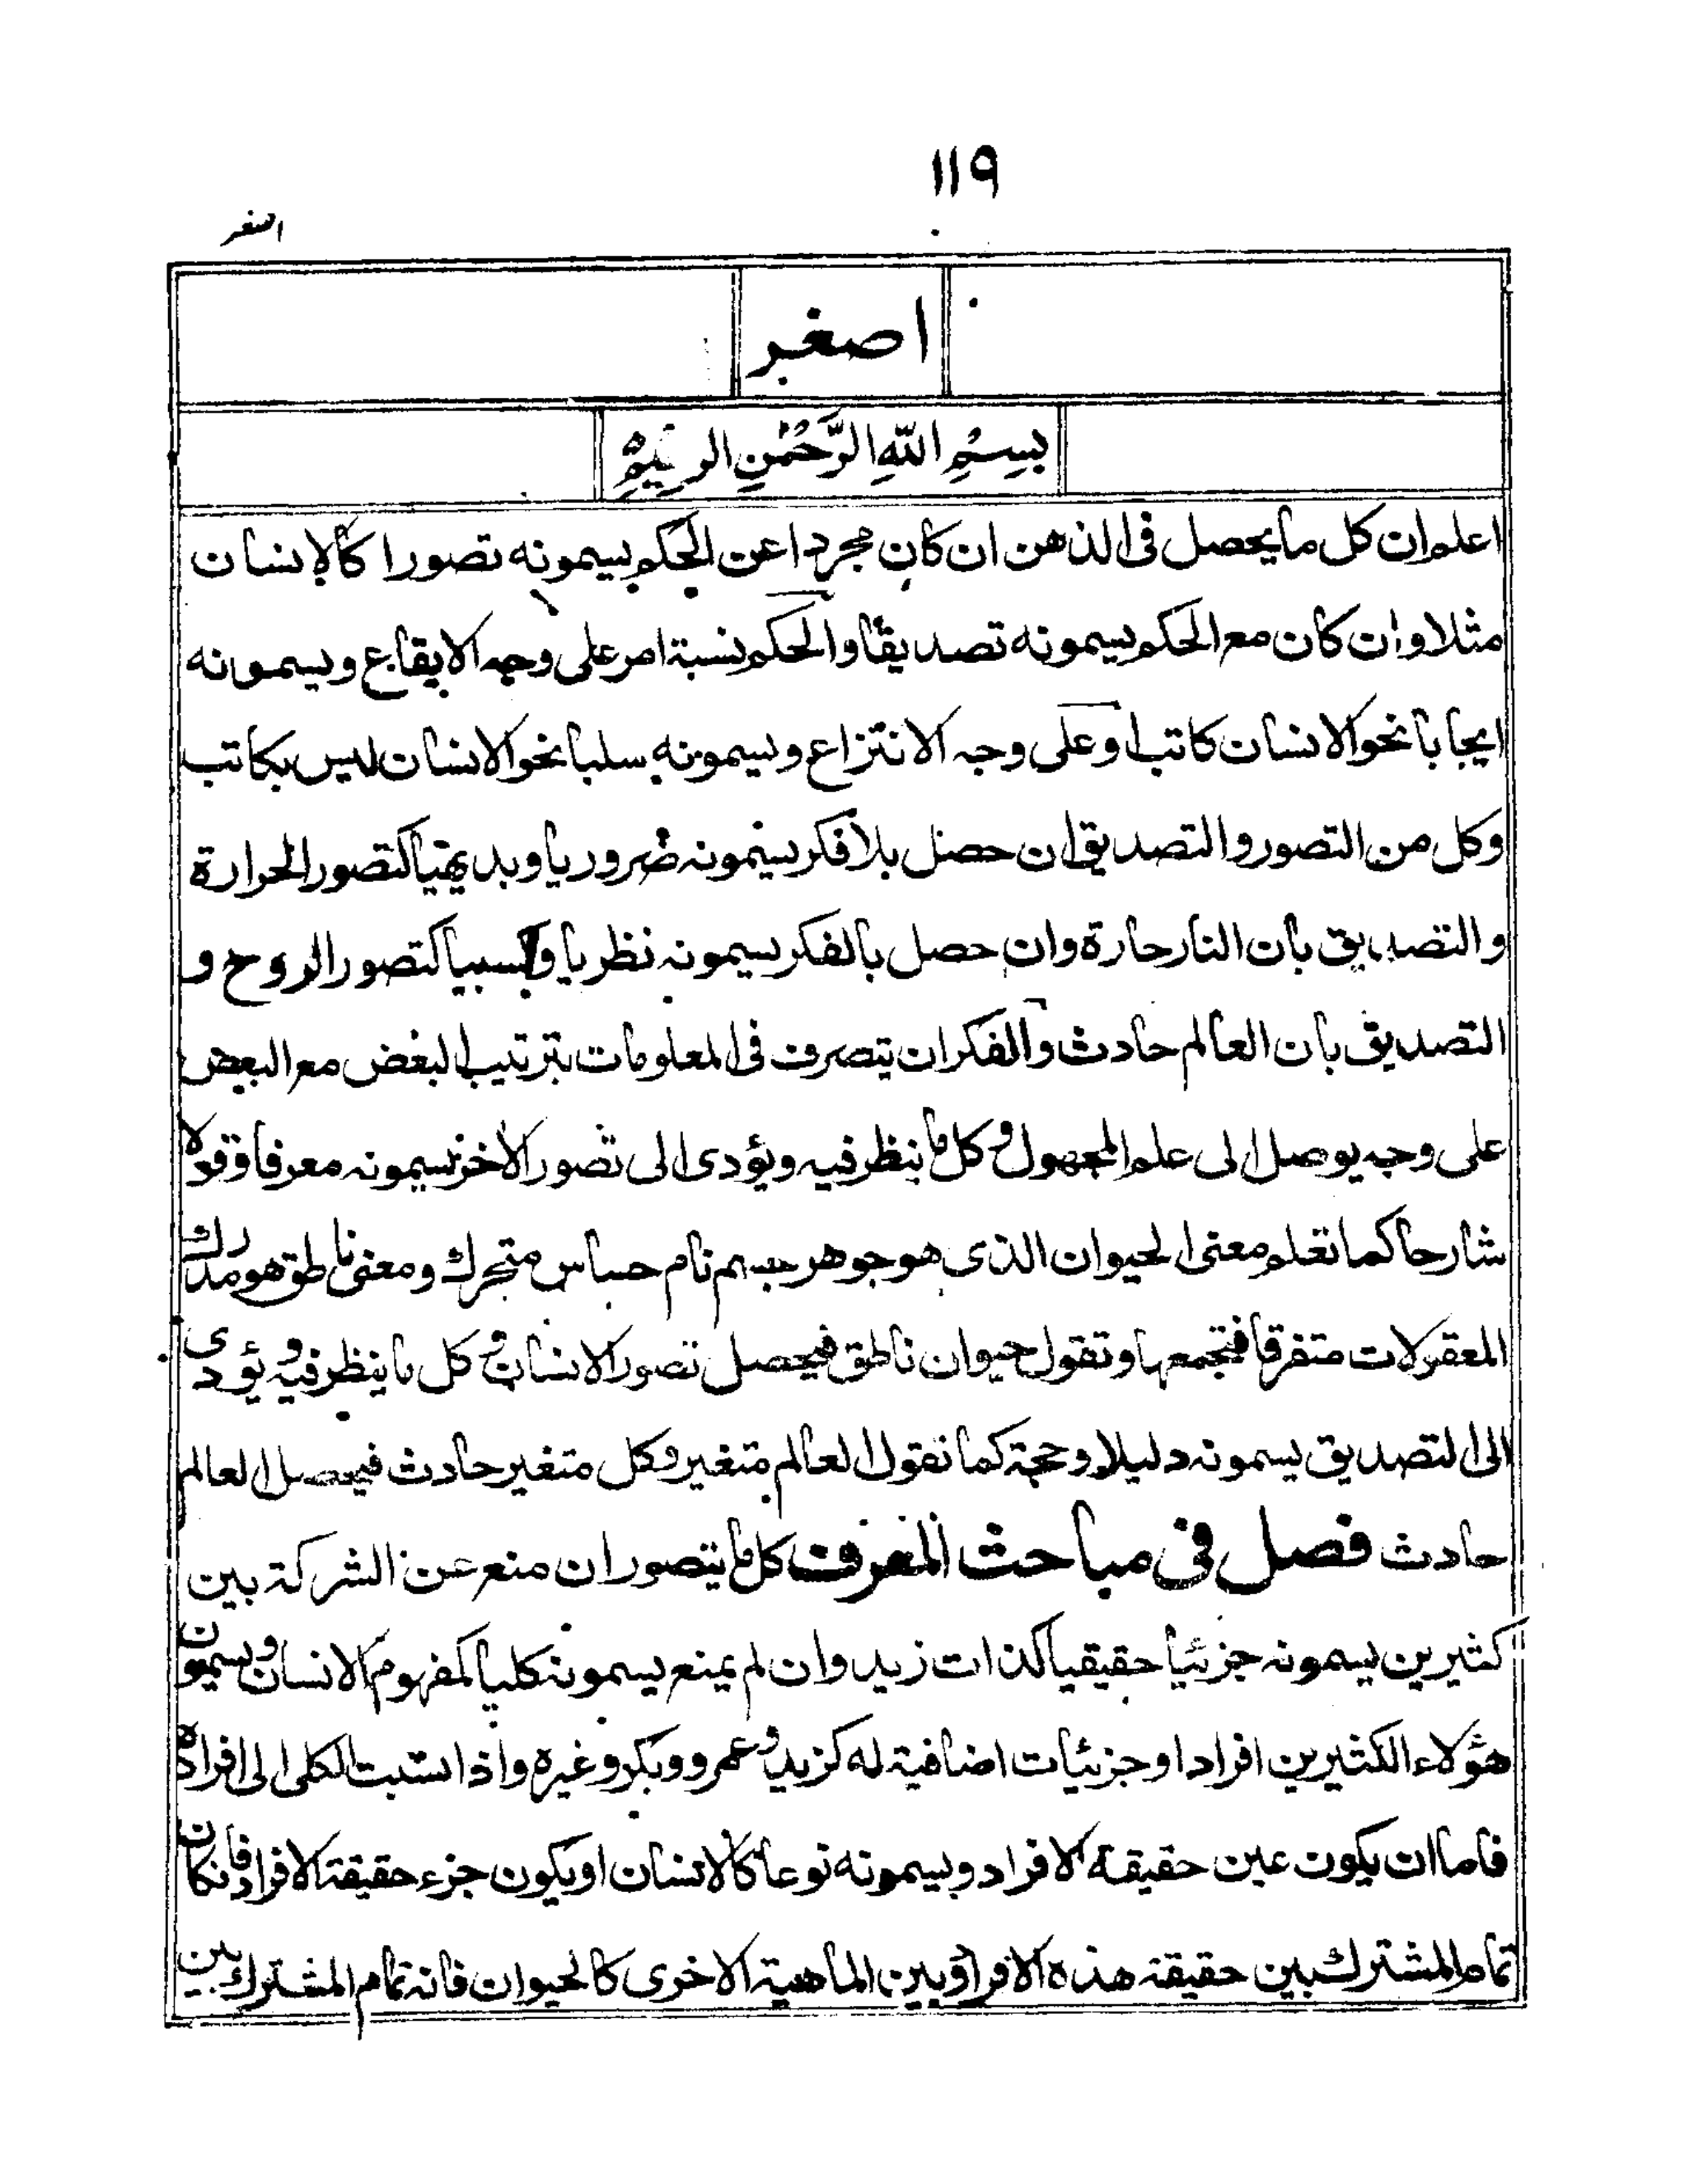 ۱۱۹
اصغر
اصغر
بِسْمِ اللّٰهِ الرَّحْمٰنِ الرحیم
اعلم ان كل ما يحصل فى الذهن ان كان مجردا عن الحكم يسمونه تصورا كالانسان
مثلا وان كان مع الحكم يسمونه تصديقا والحكم نسبة امر على وجه الايقاع ويسمونه
ايجابا نحو الانسان كاتب او على وجه الانتزاع ويسمونه سلبا نحو الانسان ليس بكاتب
وكل من التصور والتصديق ان حصل بلا فكر يسمونه ضروريا وبديهيا كتصور الحرارة
والتصديق بان النار حارة وان حصل بالفكر يسمونه نظريا وكسبيا كتصور الروح و
التصديق بان العالم حادث والفكر ان يتصرف فى المعلومات بترتيب البعض مع البعض
على وجه يوصل الى علم المجهول وكل ما ينظر فيه ويؤدى الى تصور الاخر يسمونه معرفا وقولا
شارحا كما تعلم معنى الحيوان الذى هو جوهر جسم نام حساس متحرك ومعنى ناطق هو مدرك
المعقولات متفرقا فتجمعها وتقول حيوان ناطق فيحصل تصور الانسان وكل ما ينظر فيه ويؤدى
الى التصديق يسمونه دليلا وحجة كما نقول العالم متغير وكل متغير حادث فيحصل العالم
حادث فصل فى مباحث المعرف كل ما يتصور ان منع عن الشركة بين
كثيرين يسمونه جزئيا حقيقيا كذات زيد وان لم يمنع يسمونه كليا كمفهوم الانسان ويسمون
هؤلاء الكثيرين افرادا وجزئيات اضافية له كزيد وعمرو وبكر وغيره واذا نسبت الكلى الى افراده
فاما ان يكون عين حقيقة الافراد ويسمونه نوعا كالانسان او يكون جزء حقيقة الافراد فان كان
تمام المشترك بين حقيقة هذه الافراد وبين الماهية الاخرى كالحيوان فانه تمام المشترك بين